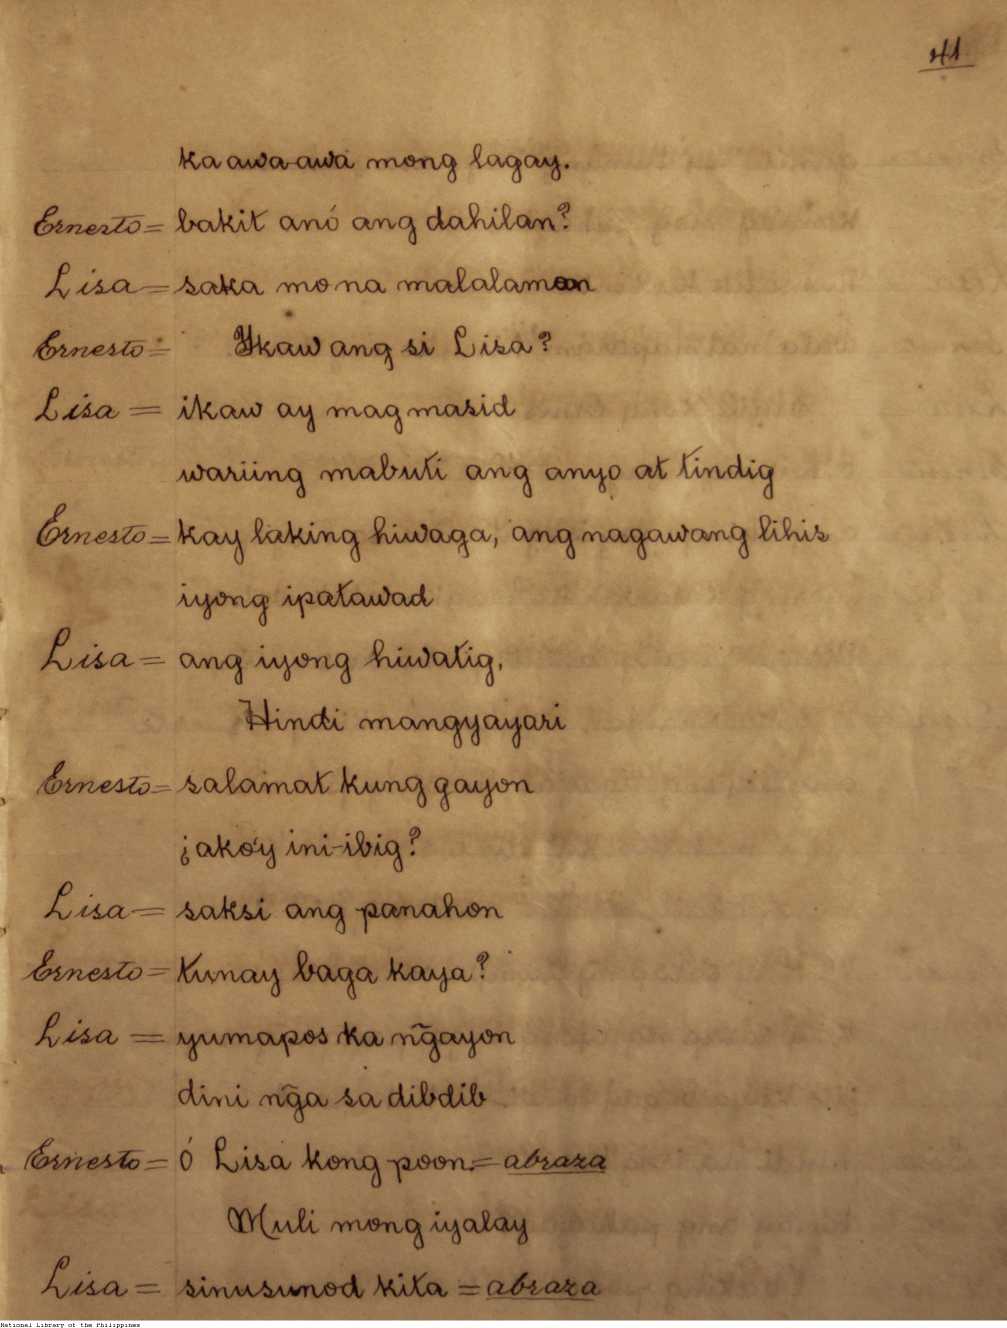 41
ka awa-awa mong lagay.
Ernesto = bakit anó ang dahilan?
Lisa = saka mo na malalaman
Ernesto = Ykaw ang si Lisa?
Lisa = ikaw ay mag masid
wariing mabuti ang anyo at tindig
Ernesto = kay laking hiwaga, ang nagawang lihis
iyong ipatawad
Lisa = ang iyong hiwatig,
Hindi mangyayari
Ernesto = salamat kung gayon
¿ako'y ini-ibig?
Lisa = saksi ang panahon
Ernesto = tunay baga kaya?
Lisa = yumapos ka ng̃ayon
dini ng̃a sa dibdib
Ernesto = ó Lisa kong poon. = abraza
Muli mong iyalay
Lisa = sinusunod kita = abraza
National Library of the Philippines